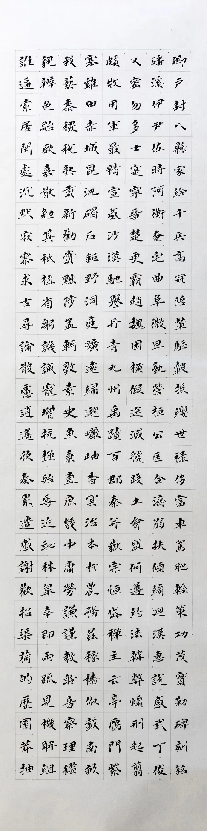 卿户封八縣家給千兵高冠陪輦驅轂振纓世祿侈富車駕肥輕策功茂實勒碑刻銘
磻溪伊尹佐時阿衡奄宅曲阜微旦孰營桓公匡合濟弱扶傾綺迴漢惠說感武丁俊
乂密勿多士寔寧晉楚更霸趙魏困橫假途滅虢踐土會盟何遵約法韓弊煩刑起翦
頗牧用軍最精宣威沙漠馳譽丹青九州禹跡百郡秦并嶽宗恒岱禪主云亭雁門紫
塞雞田赤城昆池碣石鉅野洞庭曠遠綿邈巖岫杳冥治本於農務茲稼穡俶載南畝
我藝黍稷稅熟貢新勸賞黜陟孟軻敦素史魚秉直庶幾中庸勞謙謹敕聆音察理鑑
貌辨色貽厥嘉猷勉其祗植省躬譏誡寵增抗極殆辱近恥林皋幸即兩疏見機解組
誰逼索居閒處沉默寂寥求古尋論散慮逍遙欣奏累遣慼謝歡招渠荷的歷園莽抽